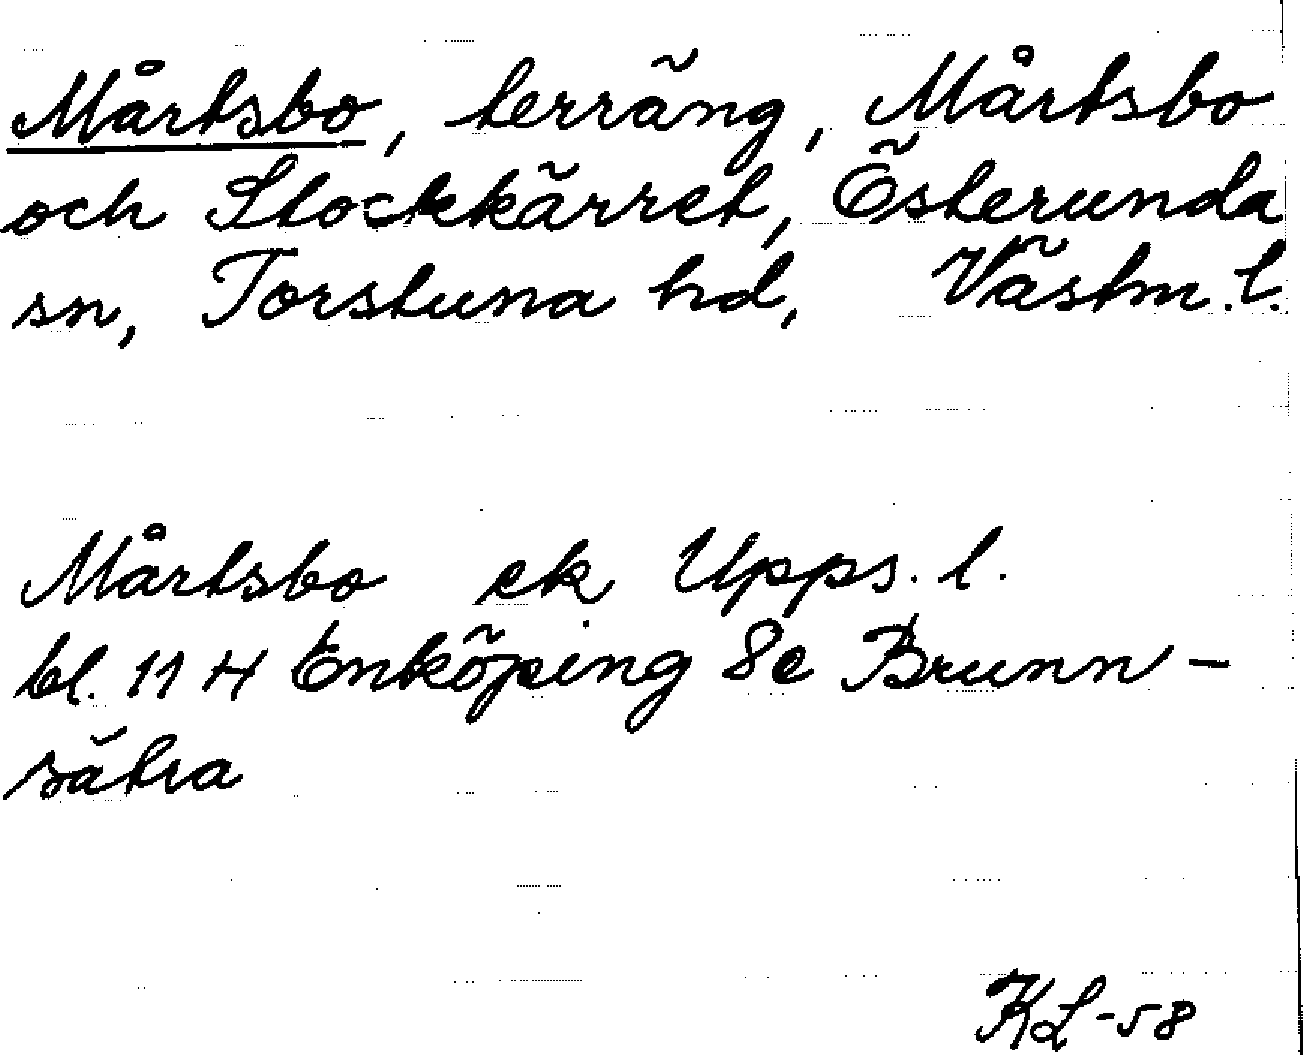 Mårtsbo, terräng, Mårtsbo
och Stockkärret, Österunda
sn, Torstuna hd, Västm. l.
Mårtsbo ek Upps. l.
bl. 11 H Enköping 8e Brunn-
sätra
KL-58